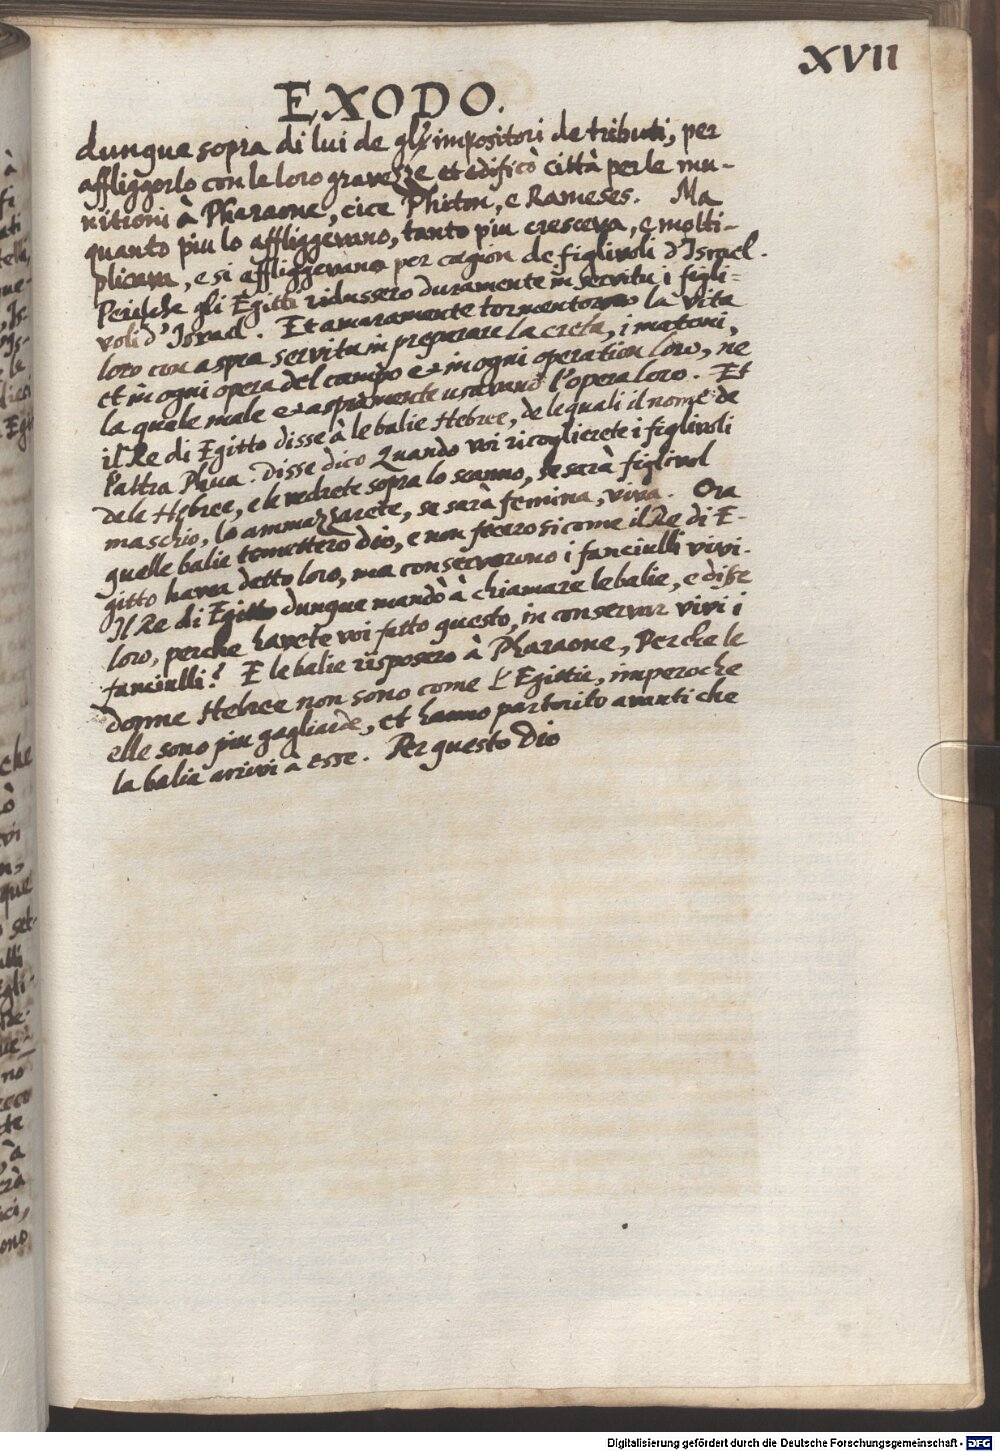 XVII
EXODO.
dunque sopra di lui de gl'impositori de tributi, per
affliggerlo con le loro gravezze et edificò città per le mu-
nitioni à Pharaone, cioe Phiton, e Rameses. Ma
quanto piu lo affliggevano, tanto piu cresceva, e molti-
plicava, e si affliggevano per cagion de figlivoli d'Israel.
Perilche gli Egitti ridussero duramente in servitu i figli-
voli d'Israel. Et amaramente tormentorno la vita
loro con aspra servitu in preparare la creta, i matoni,
et in ogni opera del campo et in ogni operation loro, ne
la quale male et aspramente usavano l'opera loro. Et
il Re di Egitto disse à le balie Hebree, de le quali il nome de
l'altra Phua. Disse dico Quando voi ricoglierete i figlivoli
de le Hebree, e le vedrete sopra lo scanno, se serà figlivol
maschio, lo ammazzarete, se sarà femina, viva. Ora
quelle balie temettero Dio, e non fecero si come il Re di E-
gitto havea detto loro, ma conservorono i fanciulli vivi.
Il Re di Egitto dunque mandò à chiamare le balie, e disse
loro, perche havete voi fatto questo, in conservar vivi i
fanciulli? E le balie risposero à Pharaone, Perche le
donne Hebree non sono come l'Egittie, imperoche
elle sono piu gagliarde, et hanno partorito avanti che
la balia arrivi à esse. Per questo Dio
Digitalisierung gefördert durch die Deutsche Forschungsgemeinschaft - DFG